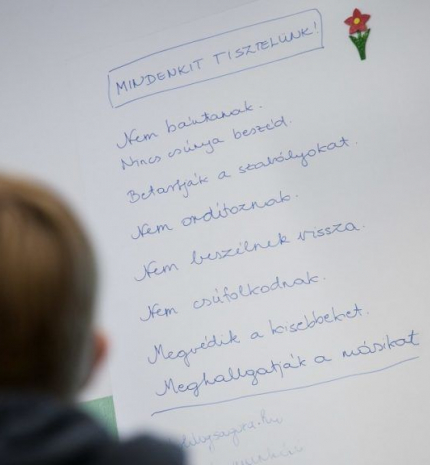 MINDENKIT TISZTELÜNK!
Nem bántanak.
Nincs csúnya beszéd.
Betartják a szabályokat.
Nem ordítoznak.
Nem beszélnek vissza.
Nem csúfolkodnak.
Megvédik a kisebbeket.
Meghallgatják a másikat